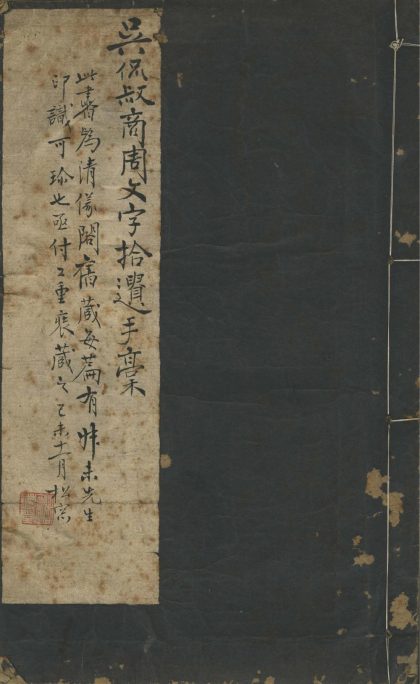 吳侃叔商周文字拾遺手稾
此書為清儀閣舊藏每篇有叔未先生
印識可珍也亟付工重裝藏之己未十一月松窗